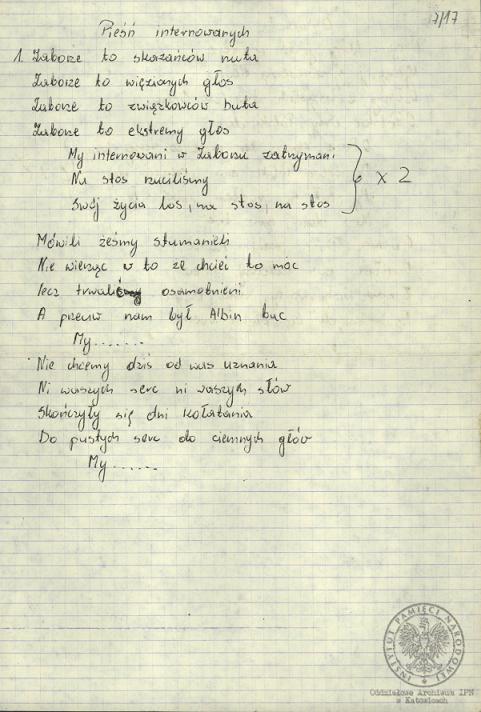 7/17
Pieśń internowanych
1. Zaborze to skazańców nuta
Zaborze to więzionych głos
Zaborze to związkowców huta
Zaborze to ekstremy głos
My internowani w Zaborzu zatrzymani
Na stos rzuciliśmy
Swój życia los, na stos, na stos
} x 2
Mówili żeśmy stumanieli
Nie wierząc w to że chcieć to móc
lecz trwali osamotnieni
A przeciw nam był Albin buc
My.......
Nie chcemy dziś od was uznania
Ni waszych serc ni waszych słów
Skończyły się dni kołatania
Do pustych serc do ciemnych głów
My.......
INSTYTUT PAMIĘCI NARODOWEJ
Oddziałowe Archiwum IPN
w Katowicach